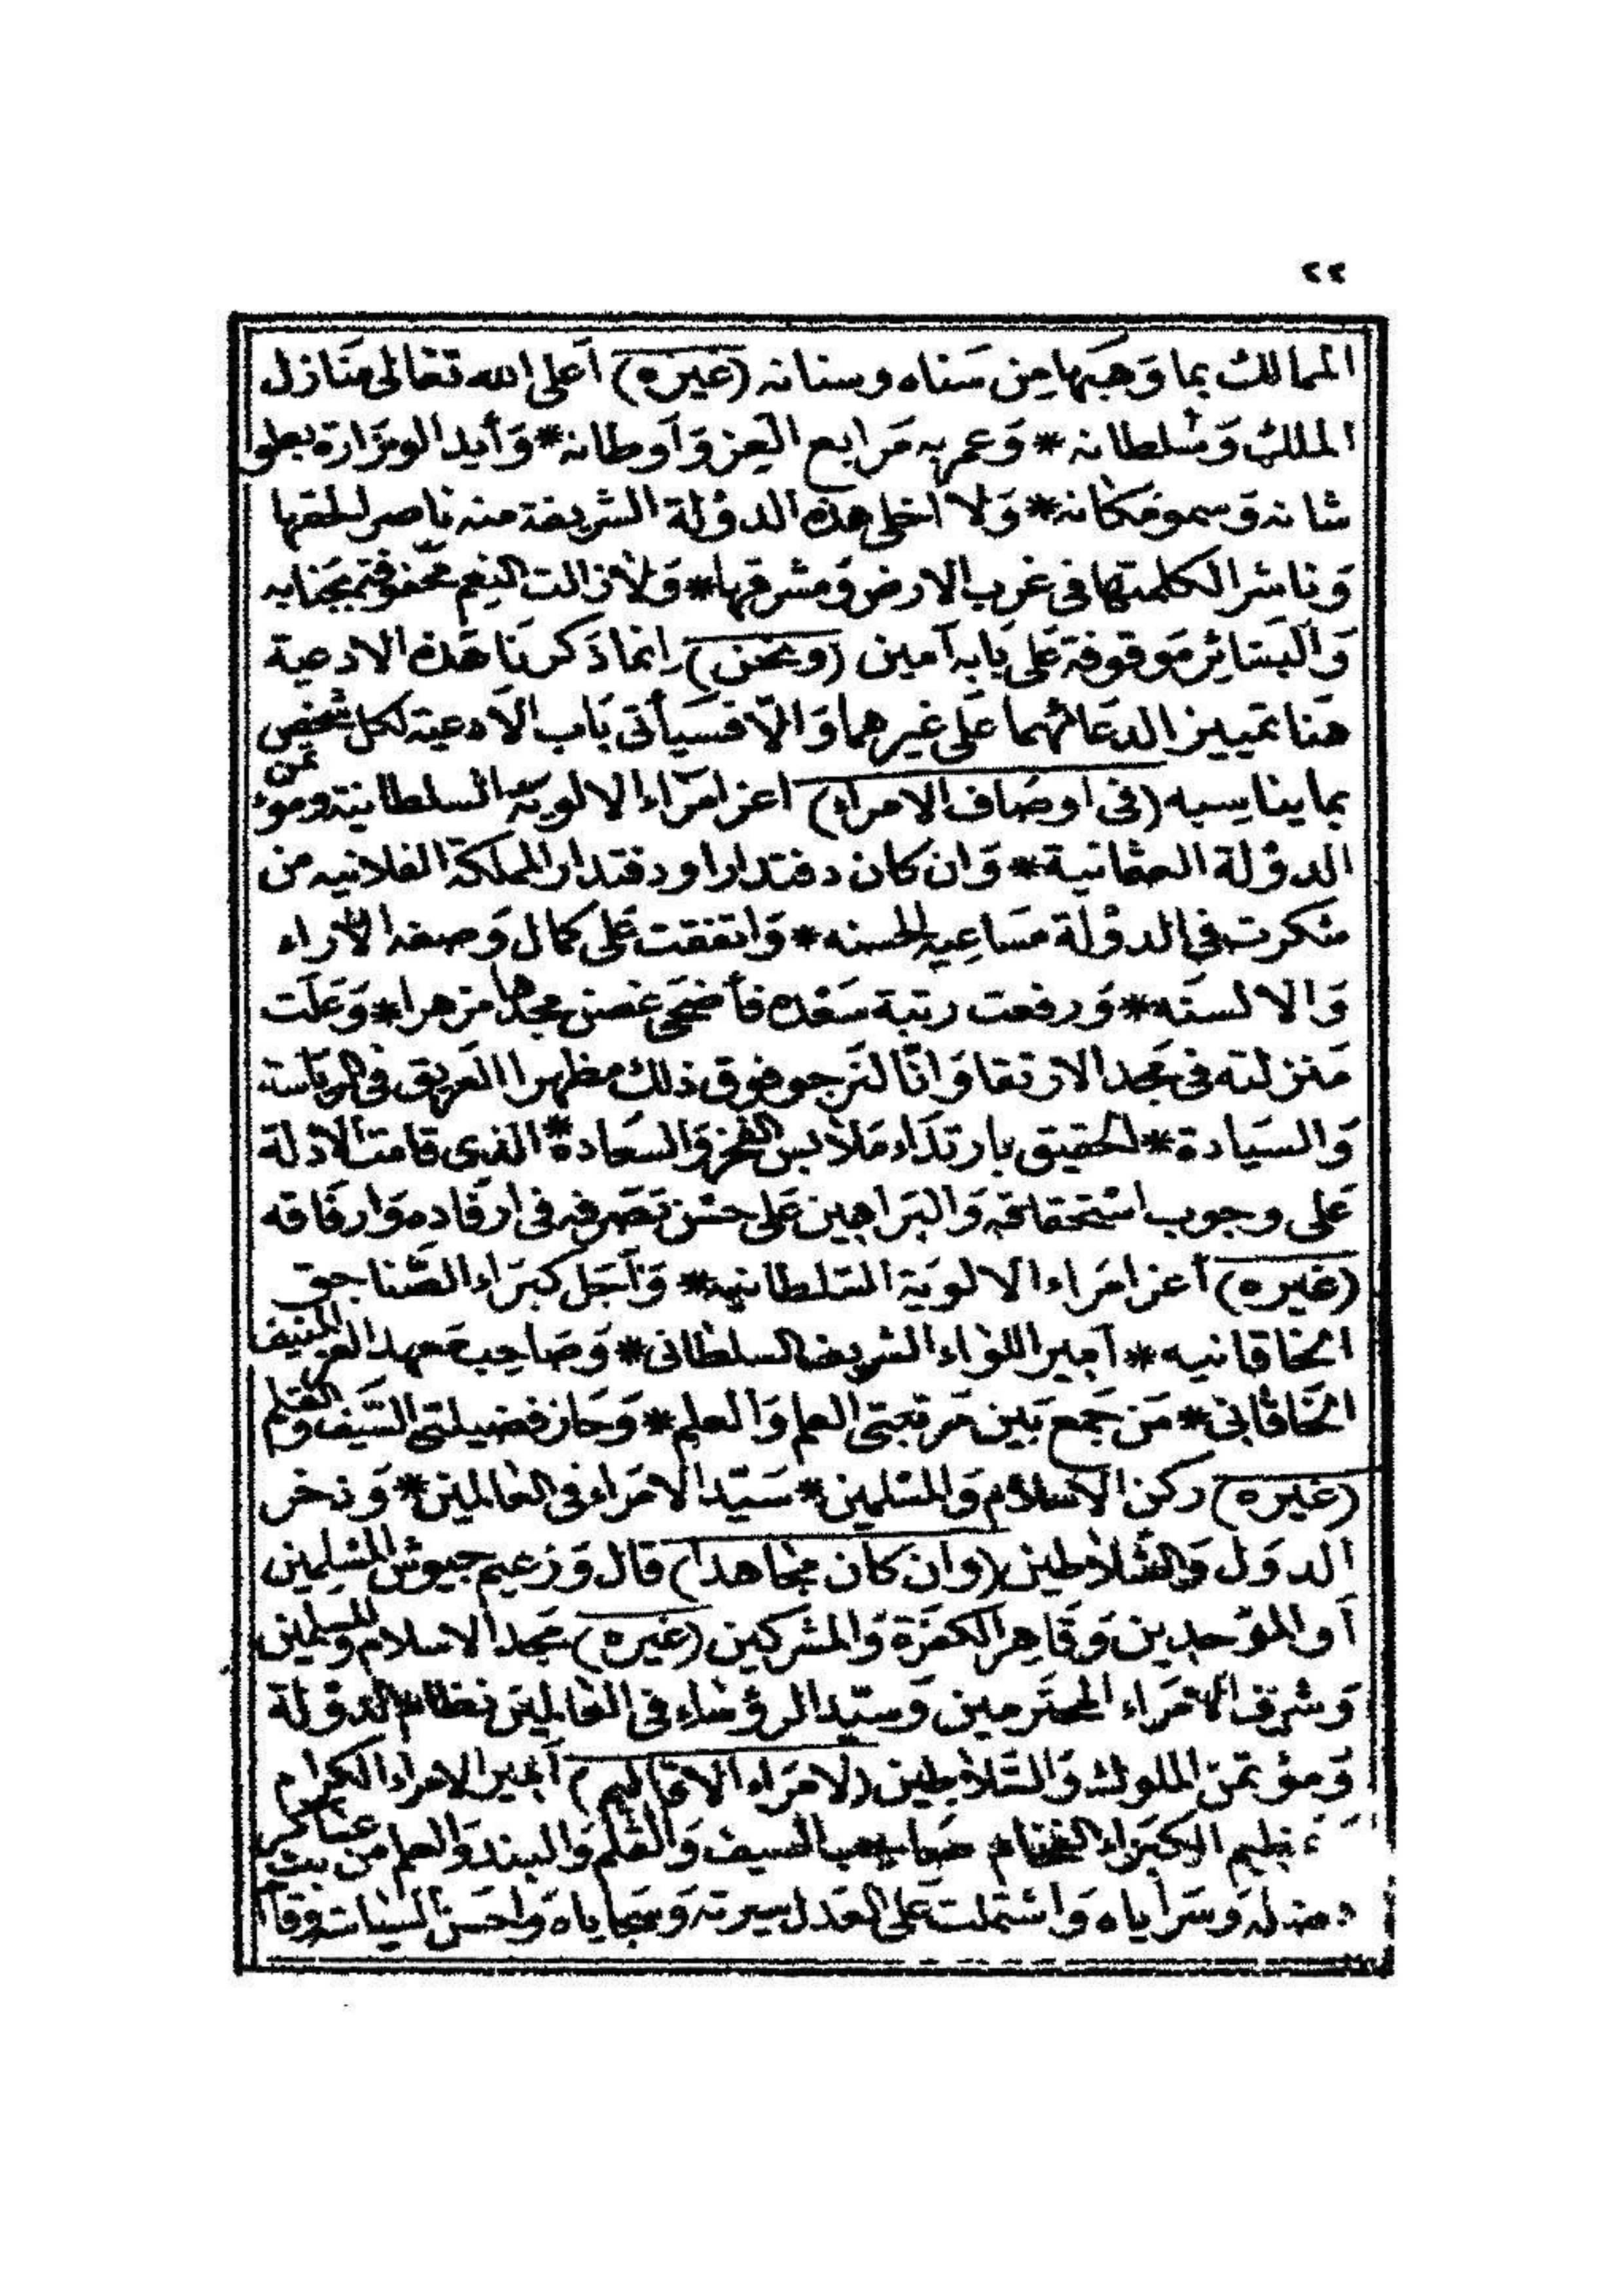 ٢٢
الممالك بما وَهَبَها مِن سَناه وسنانه (غيره) أَعلى الله تعَالى مَنَازل
الملك وَسُلطانه * وَعمر به مَرابع العِز وَأوطانه * وَأيد الوزارة بعلو
شانه وَسمو مَكانه * وَلا اخلى هذه الدوْلة الشريفة منه ناصرا لحقها
وَناشرا لكلمتها في غربِ الارض وَمشرقها * وَلا زالت النِعم محفوفة بجَنابه
وَالبَشائر مَوقوفة عَلى بَابه آمين (ونحن) انما ذكرنَا هَذه الادعية
هَنا تمييز الدعَائهما عَلى غيرهما وَالّا فسَيأتى بَاب الأدعية لكل شخص
بما يناسِبه (فى اوصَاف الامراء) اعز امرَاء الالويَة السلطانية ومؤتمن
الدوْلة العثمانية * وَان كان دفتدارا و دفتدار المملكة الفلانيه من
شكرت في الدوْلة مسَاعِيه الحسنه * وَاتفقت عَلى كمال وَصفه الآراء
وَالالسنَه * وَرفعت رتبة سَعْده فأضحَى غصن مجدها مزهرا * وَعَلَت
مَنزلته فى مَجد الارتقا وَانّا لنَرجو فوق ذلك مظهرا العَريق في الريَاسة
وَالسيَادة * الحقيق بارتدَاء مَلابس الفخر وَالسعَادة * الذى قامت الأدلة
عَلى وجوب اسْتحقاقه وَالبَراهين عَلى حسْن تَصَرفه فى ارفَادِه وَارفَاقه
(غيره) أعز امَراء الالويَة السّلطانيه * وَأَجَل كبَرَاء الصّناجق
الخاقانيه * أَمير اللواء الشريف السلطانى * وَصَاحِب مَعهد العز المنيف
الخَاقانى * مَن جَمع بَين مَرتبتى العلم وَالعلم * وَحَاز فضيلتى السَّيف وَالقلم
(غيره) ركن الاسلام وَالمسْلمين * سَيّد الامَراء فى العَالمين * وَذخر
الدوَل وَالسّلاطين (وان كان مجَاهدا) قال وَزعيم جيوش المسْلِمين
أَو الموَحدين وَقَاهِر الكفَرَة وَالمشركين (غيره) مَجد الاسلام وَالمسلمين
وَشرف الامَراء المحتَرمين وَسيّد الرؤسَاء فى العَالمين نظام الدوْلة
وَمؤتمَن الملوك وَالسّلاطين (لامَراء الاقاليم) أَمير الامراء الكرام
الكبَراء الفخام صَاحِب السيف وَالقلم وَالبند وَالعلم من عسَاكره
وَسَراياه وَاشتملت عَلى العَدل سيرته وَسَجَاياه وَاحسَن